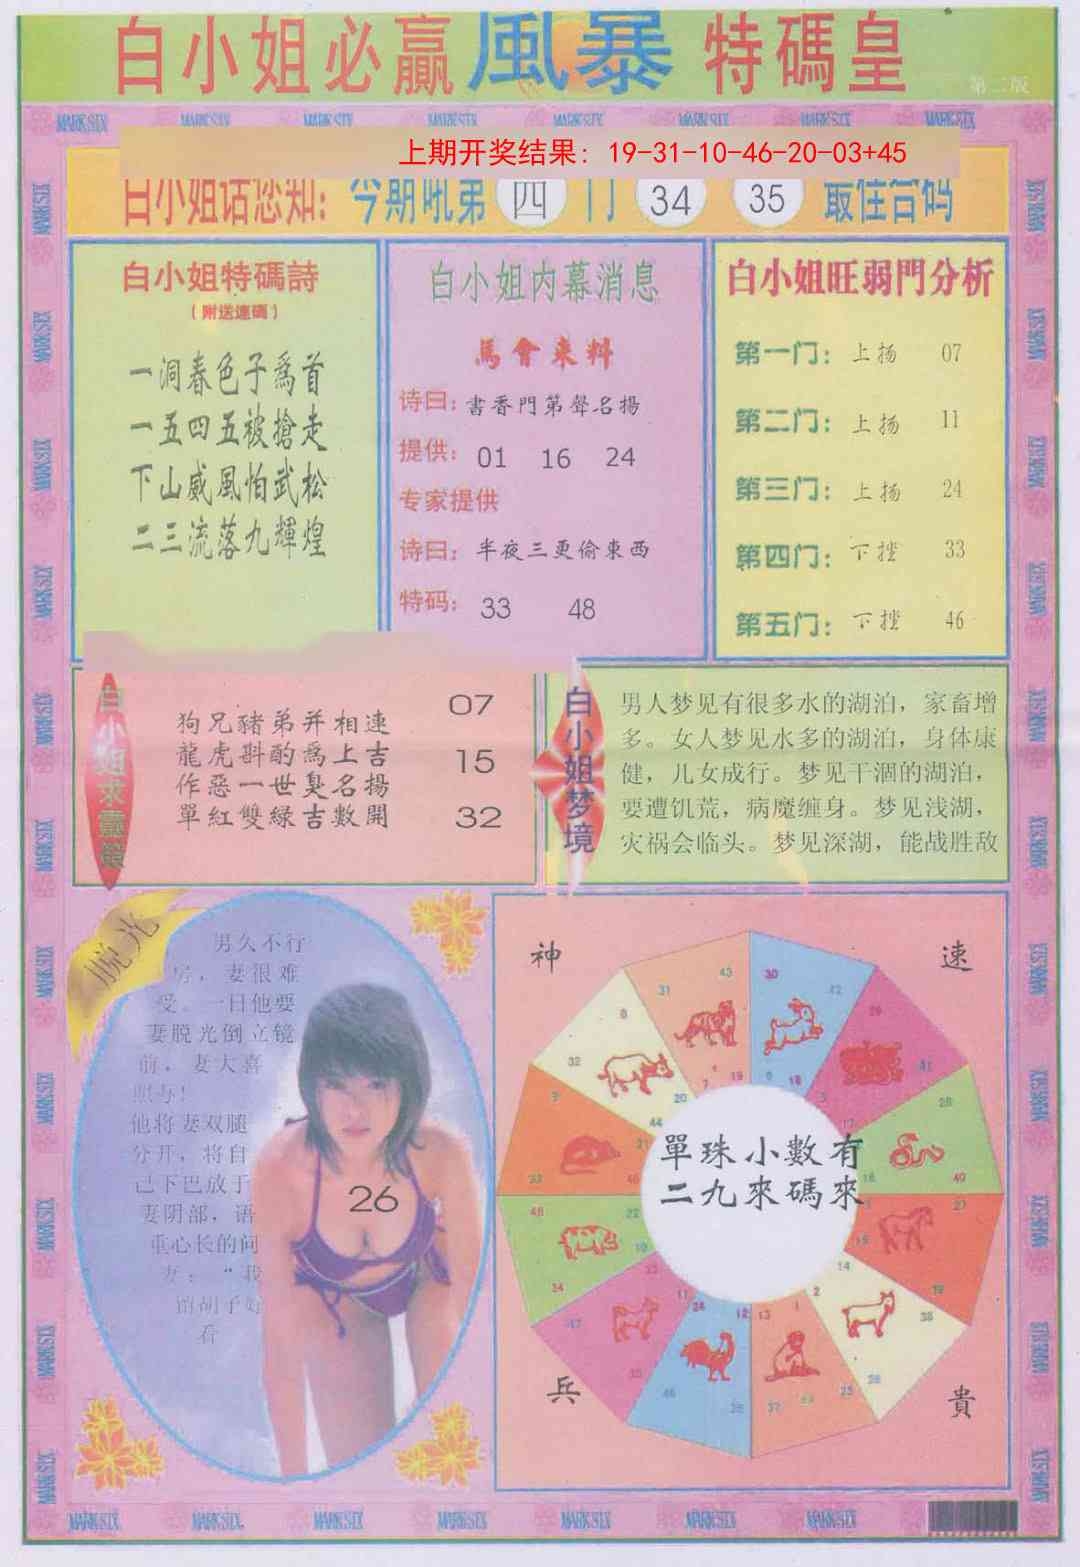 白小姐必赢風暴特碼皇
第二版
MARK SIX MARK SIX MARK SIX MARK SIX MARK SIX MARK SIX MARK SIX MARK SIX
上期开奖结果：19-31-10-46-20-03+45
白小姐话您知：今期吼第四门 34 35 最佳合码
白小姐特碼詩
(附送連碼)
一洞春色子爲首
一五四五被搶走
下山威風怕武松
二三流落九輝煌
白小姐内幕消息
馬會来料
诗曰：書香門第聲名揚
提供：01 16 24
专家提供
诗曰：半夜三更偷東西
特码：33 48
白小姐旺弱門分析
第一门：上扬 07
第二门：上扬 11
第三门：上扬 24
第四门：下挫 33
第五门：下挫 46
狗兄豬弟并相連
龍虎斟酌爲上吉
作惡一世臭名揚
單紅雙緑吉數開
07
15
32
白小姐梦境
男人梦见有很多水的湖泊，家畜增
多。女人梦见水多的湖泊，身体康
健，儿女成行。梦见干涸的湖泊，
要遭饥荒，病魔缠身。梦见浅湖，
灾祸会临头。梦见深湖，能战胜敌
脱光
男久不行
房，妻很难
受。一日他要
妻脱光倒立镜
前，妻大喜
照与！
他将妻双腿
分开，将自
己下巴放于
妻阴部，语
重心长的问
妻："我
的胡子好
看
26
神
速
兵
貴
單珠小數有
二九來碼來
31 43 30 42
8 32 20 44
7 19 6 18
MARK SIX MARK SIX MARK SIX MARK SIX MARK SIX MARK SIX MARK SIX